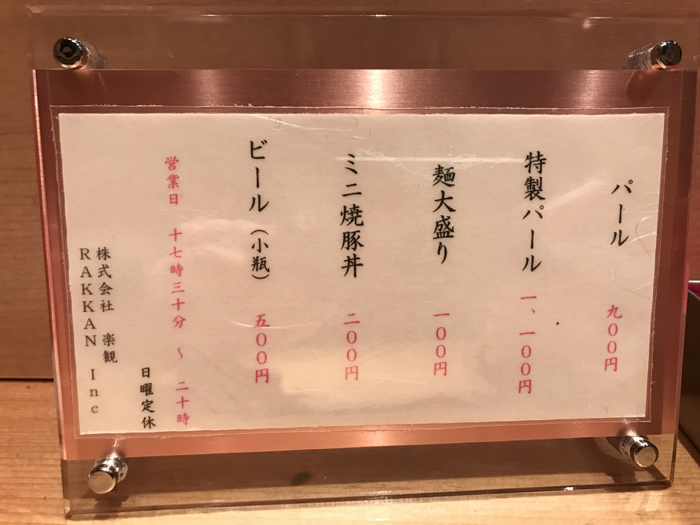 パール 九00円
特製パール 一、一00円
麺大盛り 一00円
ミニ焼豚丼 二00円
ビール（小瓶） 五00円
営業日 十七時三十分 ～ 二十時
日曜定休
株式会社 楽観
RAKKAN Inc